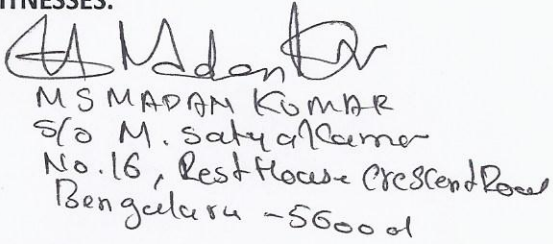 WITNESSES:
Madan Kr
M S MADAN KUMAR
S/o M. Satya Kumar
No. 16, Rest House Crescent Road
Bengaluru - 560001